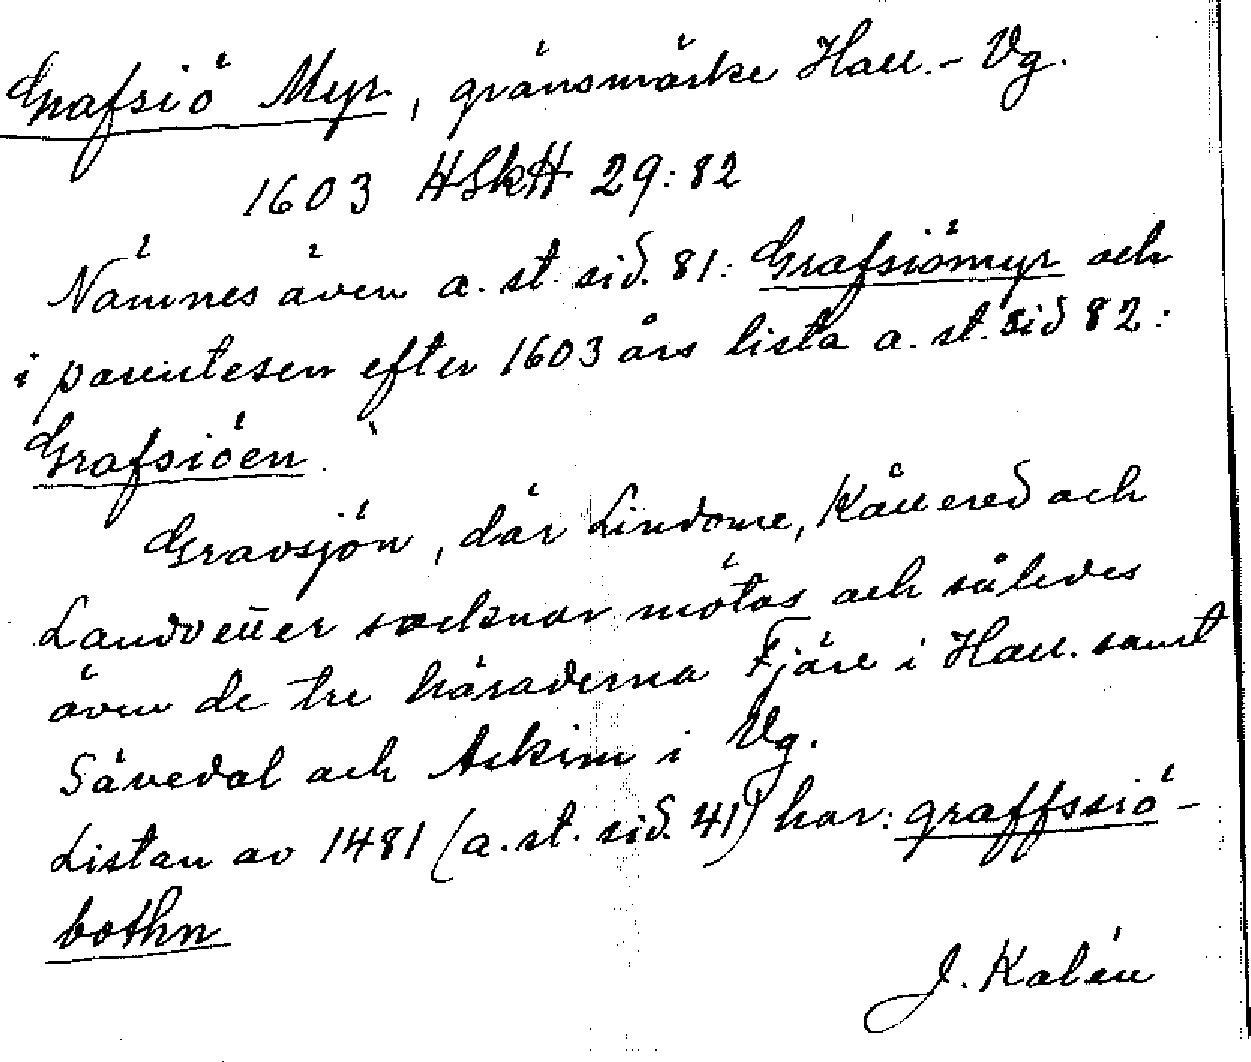 Grafsiö Myr, gränsmärke Hall.- Vg.
1603 HSkH 29:82
Nämnes även a. st. sid. 81: Grafsiömyr och
i parentesen efter 1603 års lista a. st. sid 82:
Grafsiöen.
Gravsjön, där Lindome, Kållered och
Landvetter socknar mötas och således
även de tre häraderna Fjäre i Hall. samt
Sävedal och Askim i Vg.
Listan av 1481 (a. st. sid. 41) har: graffssiö-
bothn
J. Kalén